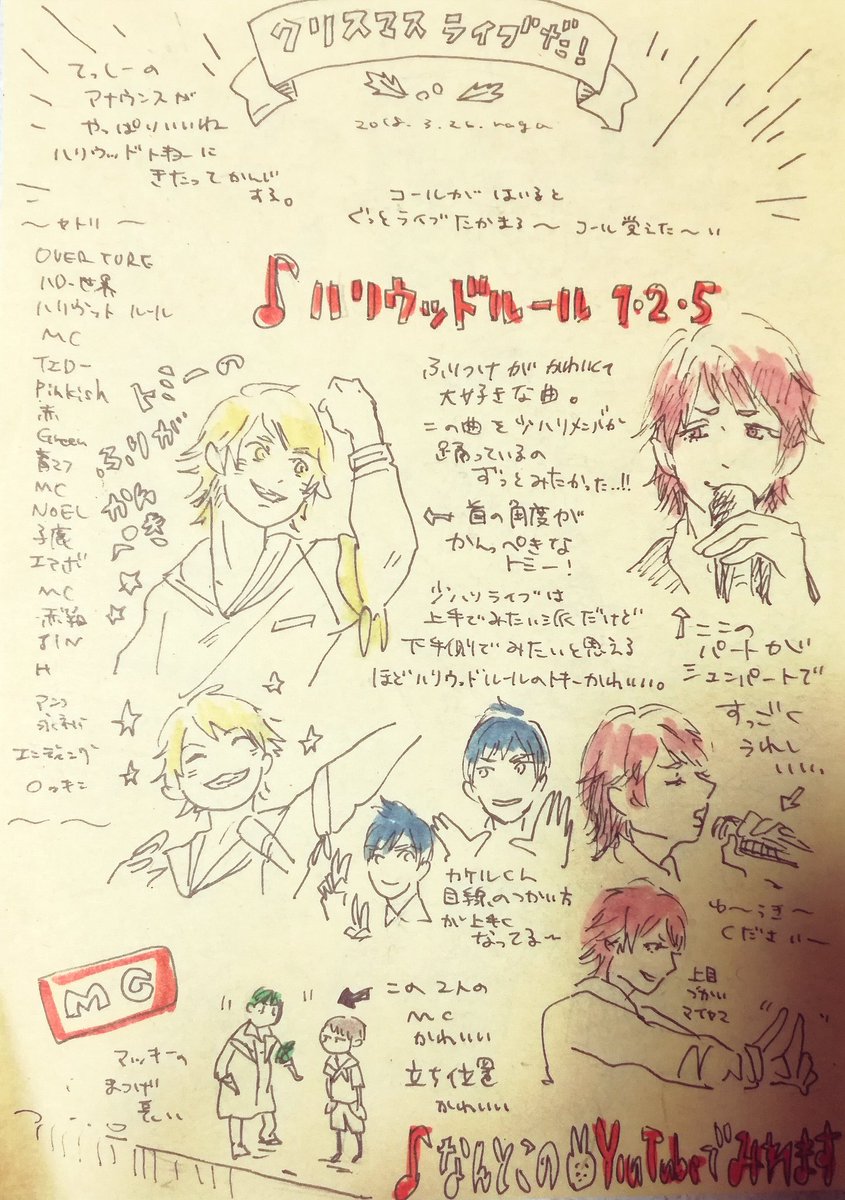 クリスマスライブだ!
2018.3.26. naga
てっしーの
アナウンスが
やっぱりいいね
ハリウッドトねーに
きたってかんじ
する。
コールが はいると
ぐっとライブたかまる〜 コール覚えた〜い
〜セトリ〜
OVERTURE
ハロー世界
ハリウッド ルール
MC
TIDー
Pinkish
赤
Green
MC
NOEL
子鹿
エアボ
MC
赤鞄
JIN
H
アンコ
エンディング
〜 〜
♪ハリウッドルール 1・2・5
トミーの
ふりが
かんぺき
ふりつけが かわいくて
大好きな曲。
この曲を少ハリメンバが
踊っているの
ずっとみたかった..!!
⇐ 首の角度が
かんっぺきな
トミー!
少ハリライブは
上手でみたい派だけど
下手側でみたいと思える
ほどハリウッドルールのトキーかわいい。
↑ここの
パートが
シュンパートで
すっごく
うれし
いいい
カケルくん
目線のつかい方
が上手く
なってる〜
ゆ〜うき〜
ください〜
上目
づかい
マイヤマ
MC
マッキーの
まつげ
長しい
この2人の
MC
かわいい
立ち位置
かわいい
♪なんとこの YouTubeでみれます